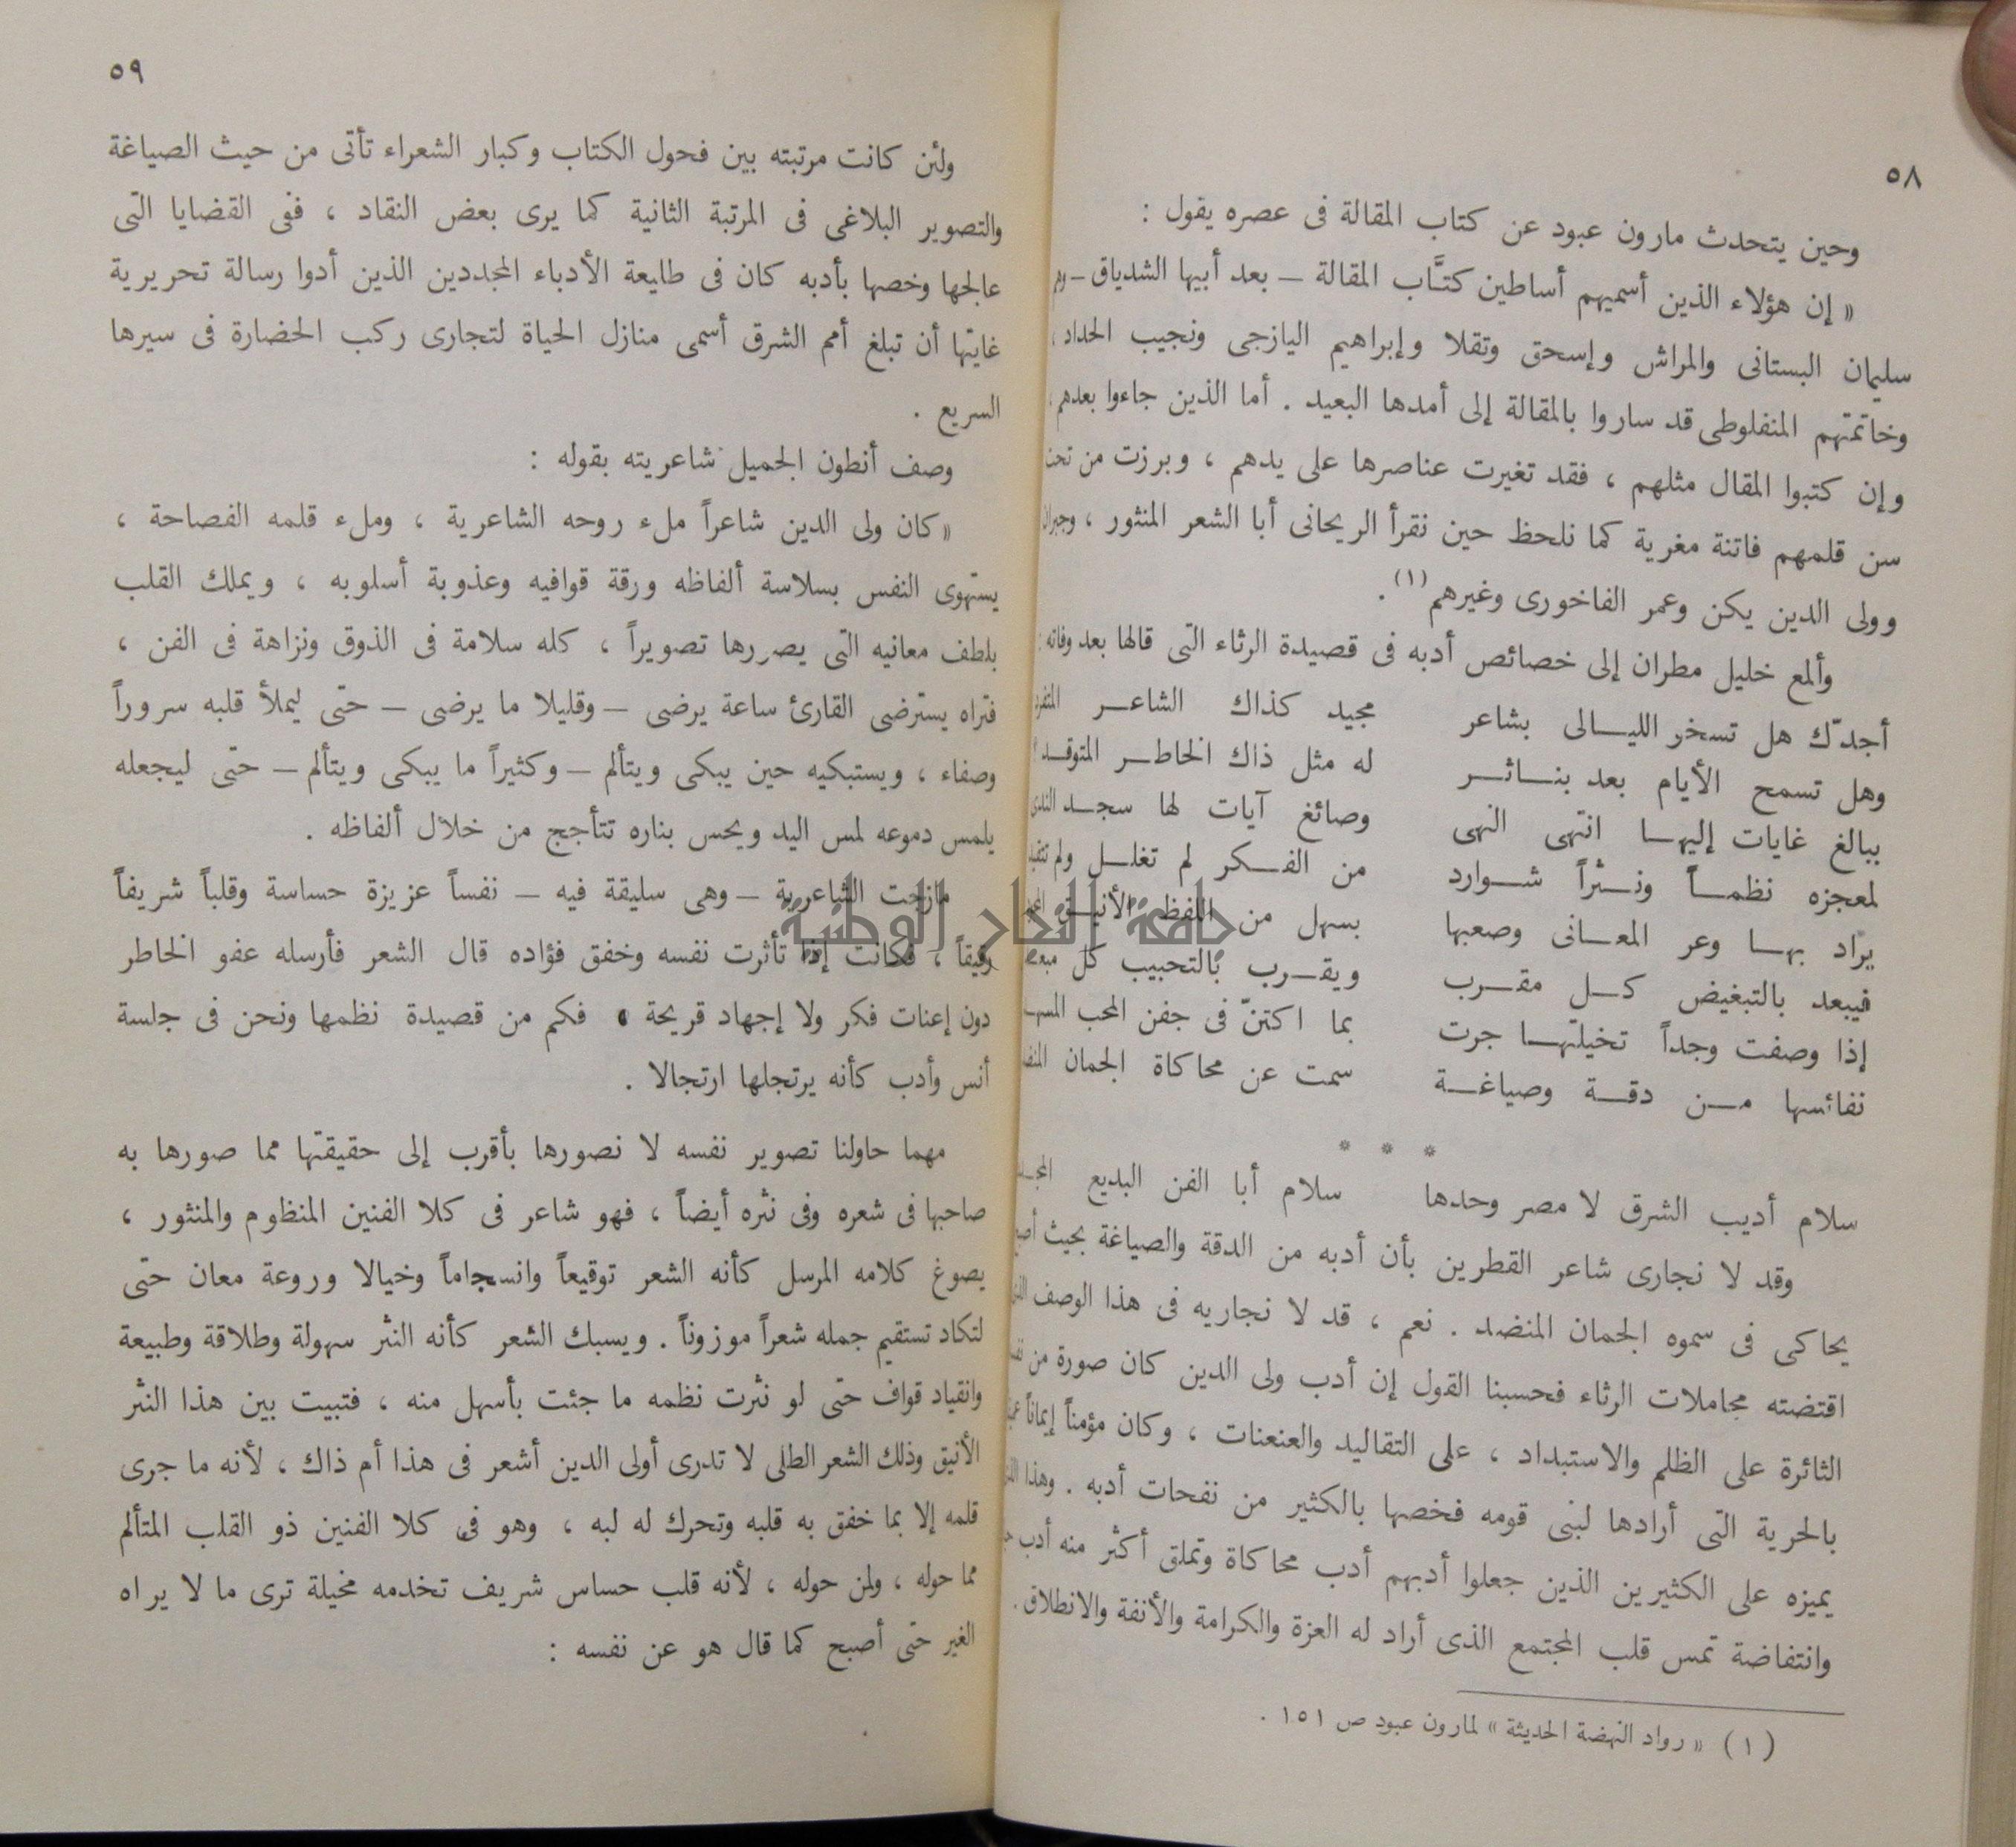 ٥٨
وحين يتحدث مارون عبود عن كتاب المقالة فى عصره يقول :
« إن هؤلاء الذين أسميهم أساطين كتَّاب المقالة – بعد أبيها الشدياق –
سليمان البستانى والمراش وإسحق وتقلا وإبراهيم اليازجى ونجيب الحداد ،
وخاتمتهم المنفلوطى قد ساروا بالمقالة إلى أمدها البعيد . أما الذين جاءوا بعدهم ،
وإن كتبوا المقال مثلهم ، فقد تغيرت عناصرها على يدهم ، وبرزت من تحت
سن قلمهم فاتنة مغرية كما نلحظ حين نقرأ الريحانى أبا الشعر المنثور ، وجبران
وولى الدين يكن وعمر الفاخورى وغيرهم (١) .
وألمع خليل مطران إلى خصائص أدبه فى قصيدة الرثاء التى قالها بعد وفاته :
أجدّك هل تسخر الليـالى بشاعر مجيد كذاك الشاعـر المتفرد
وهل تسمح الأيام بعد بنـاثـر له مثل ذاك الخاطـر المتوقـد
ببالغ غايات إليهـا انتهى النهى وصائغ آيات لها سجـد
لمعجزه نظمـاً ونـثراً شـوارد من الفـكر لم تغلـل ولم
يراد بهـا وعر المعـانى وصعبها بسهل من اللفظ الأنيـق
فيبعد بالتبغيض كـل مقـرب ويقـرب بالتحبيب كل مبعد
إذا وصفت وجداً تخيلتهـا جرت بما اكتنّ فى جفن المحب
نفائسها مـن دقـة وصياغـة سمت عن محاكاة الجمان
* * *
سلام أديب الشرق لا مصر وحدها سلام أبا الفن البديع
وقد لا نجارى شاعر القطرين بأن أدبه من الدقة والصياغة بحيث
يحاكى فى سموه الجمان المنضد . نعم ، قد لا نجاريه فى هذا الوصف
اقتضته مجاملات الرثاء فحسبنا القول إن أدب ولى الدين كان صورة من
الثائرة على الظلم والاستبداد ، على التقاليد والعنعنات ، وكان مؤمناً إيماناً
بالحرية التى أرادها لبنى قومه فخصها بالكثير من نفحات أدبه . وهذا
يميزه على الكثيرين الذين جعلوا أدبهم أدب محاكاة وتملق أكثر منه أدب
وانتفاضة تمس قلب المجتمع الذى أراد له العزة والكرامة والأنفة والانطلاق .
(١) « رواد النهضة الحديثة » لمارون عبود ص ١٥١ .
٥٩
ولئن كانت مرتبته بين فحول الكتاب وكبار الشعراء تأتى من حيث الصياغة
والتصوير البلاغى فى المرتبة الثانية كما يرى بعض النقاد ، ففى القضايا التى
عالجها وخصها بأدبه كان فى طليعة الأدباء المجددين الذين أدوا رسالة تحريرية
غايتها أن تبلغ أمم الشرق أسمى منازل الحياة لتجارى ركب الحضارة فى سيرها
السريع .
وصف أنطون الجميل شاعريته بقوله :
« كان ولى الدين شاعراً ملء روحه الشاعرية ، وملء قلمه الفصاحة ،
يستهوى النفس بسلاسة ألفاظه ورقة قوافيه وعذوبة أسلوبه ، ويملك القلب
بلطف معانيه التى يصررها تصويراً ، كله سلامة فى الذوق ونزاهة فى الفن ،
فتراه يسترضى القارئ ساعة يرضى – وقليلا ما يرضى – حتى ليملأ قلبه سروراً
وصفاء ، ويستبكيه حين يبكى ويتألم – وكثيراً ما يبكى ويتألم – حتى ليجعله
يلمس دموعه لمس اليد ويحس بناره تتأجج من خلال ألفاظه .
مازجت الشاعرية – وهى سليقة فيه – نفساً عزيزة حساسة وقلباً شريفاً
رقيقاً ، فكانت إذا تأثرت نفسه وخفق فؤاده قال الشعر فأرسله عفو الخاطر
دون إعنات فكر ولا إجهاد قريحة ، فكم من قصيدة نظمها ونحن فى جلسة
أنس وأدب كأنه يرتجلها ارتجالا .
مهما حاولنا تصوير نفسه لا نصورها بأقرب إلى حقيقتها مما صورها به
صاحبها فى شعره وفى نثره أيضاً ، فهو شاعر فى كلا الفنين المنظوم والمنثور ،
يصوغ كلامه المرسل كأنه الشعر توقيعاً وانسجاماً وخيالا وروعة معان حتى
لتكاد تستقيم جمله شعراً موزوناً . ويسبك الشعر كأنه النثر سهولة وطلاقة وطبيعة
وانقياد قواف حتى لو نثرت نظمه ما جئت بأسهل منه ، فتبيت بين هذا النثر
الأنيق وذلك الشعر الطلى لا تدرى أولى الدين أشعر فى هذا أم ذاك ، لأنه ما جرى
قلمه إلا بما خفق به قلبه وتحرك له لبه ، وهو فى كلا الفنين ذو القلب المتألم
مما حوله ، ولمن حوله ، لأنه قلب حساس شريف تخدمه مخيلة ترى ما لا يراه
الغير حتى أصبح كما قال هو عن نفسه :
جامعة النجاح الوطنية